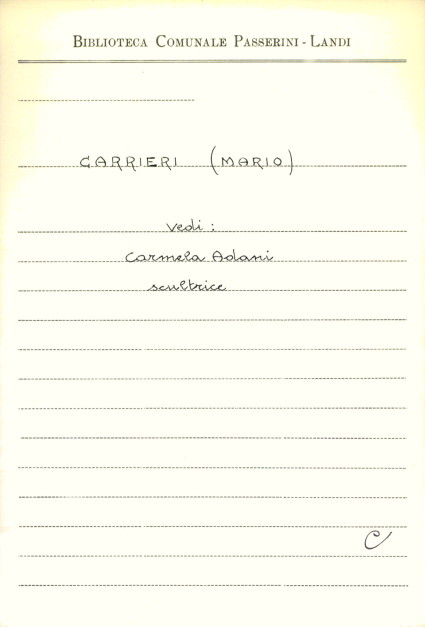 BIBLIOTECA COMUNALE PASSERINI - LANDI
CARRIERI (MARIO)
vedi :
Carmela Adani
scultrice
C